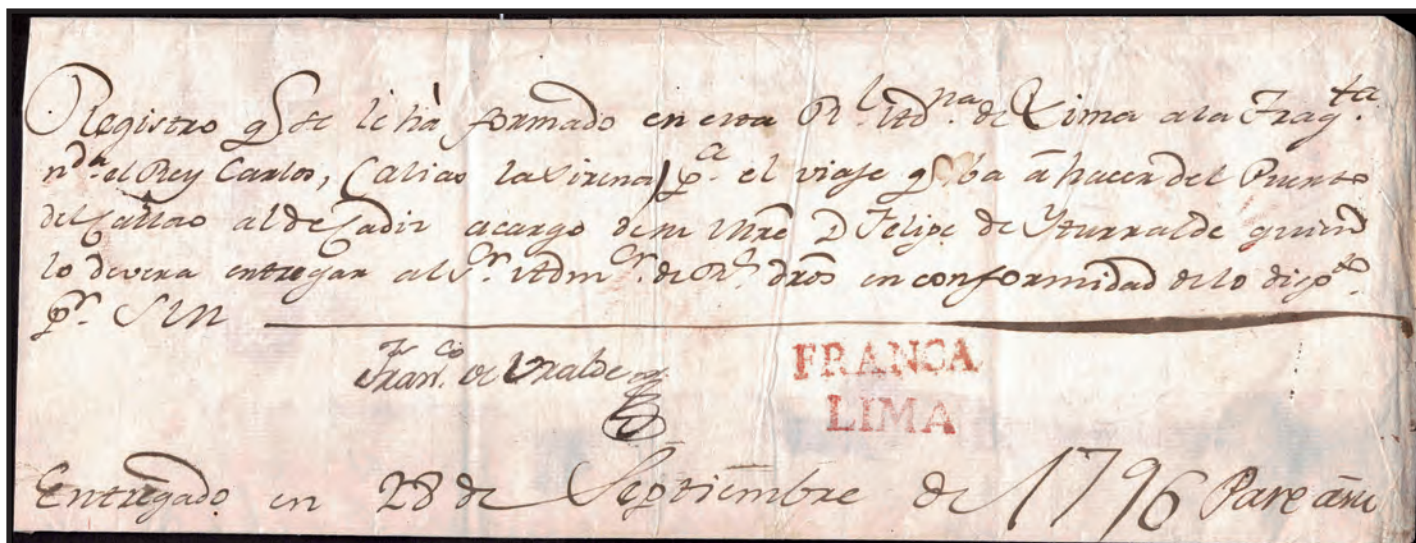 Registro q se le há formado en esta Rl. Adna. de Lima a la Fragta.
nda. el Rey Carlos, (alias la Sirena) pa. el viaje q. ba â hacer del Puerto
del Callao al de Cadiz a cargo de su Mrē Dn Felipe de Yturralde quien
lo devera entregar al Sr. Admor. de Rs. dros en conformidad de lo dispto.
pr. S M
Franco. de Uralde
FRANCA
LIMA
Entregado en 28 de Septiembre de 1796